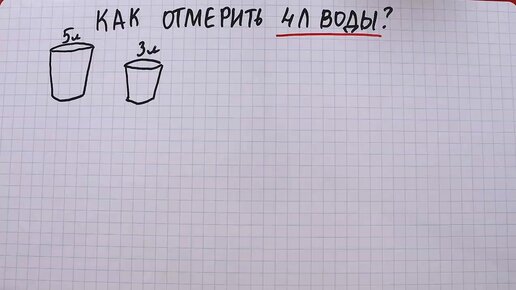 КАК ОТМЕРИТЬ 4Л ВОДЫ?
5л 3л